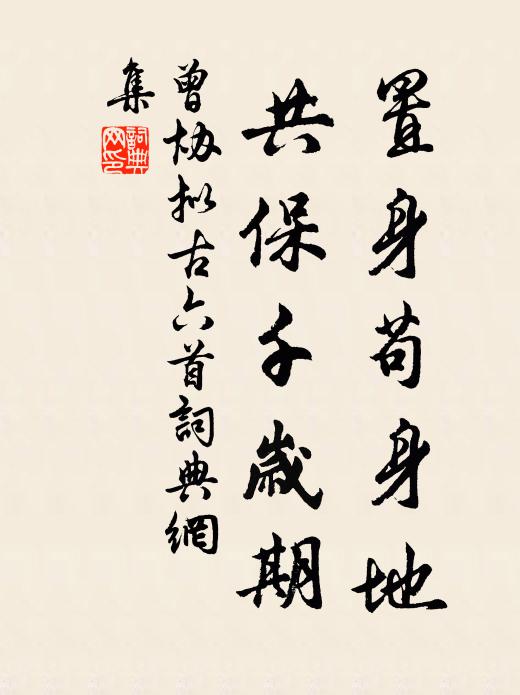 置身苟身地
共保千歲期
曾協拟古六首詞典網
集
詞典網印